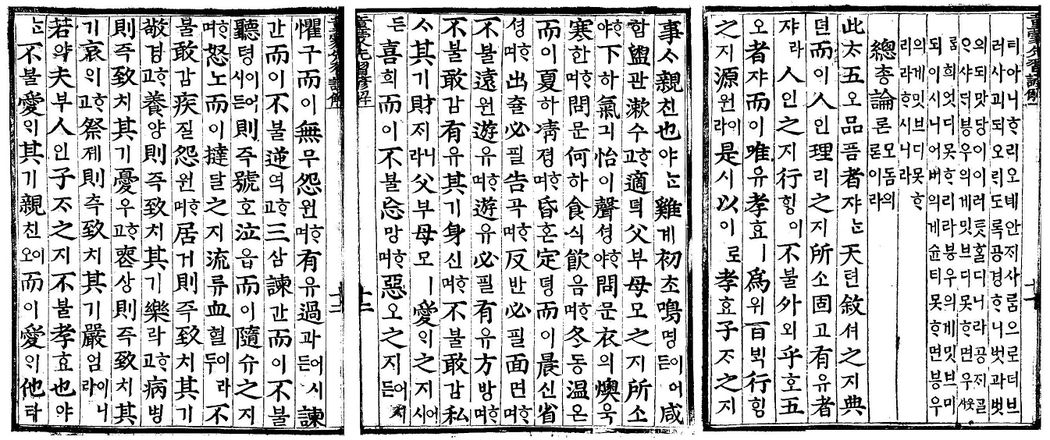 티아니ᄒᆞ리오녜안자사ᄅᆞᆷ으로뎌브
러사괴되오래도록공경ᄒᆞ니벗과벗
의되맛당이이러ᄐᆞᆺᄒᆞᆯ디니라공ᄌᆡᄀᆞᆯ
ᄋᆞ샤ᄃᆡ븡우의게밋브디못ᄒᆞ면우
희엇디못ᄒᆞ리라븡우의게밋브미
되이시니어버의게슌티못ᄒᆞ면븡우
의게밋브디못ᄒᆞ
리라ᄒᆞ시니라
總총論론
此ᄎᆞ五오品픔者쟈ᄂᆞᆫ天텬敘셔之지典
뎐而이人인理리之지所소固고有유者
쟈라人인之지行ᄒᆡᆼ이不블外외乎호五
오者쟈而이唯유孝효ㅣ爲위百ᄇᆡᆨ行ᄒᆡᆼ
之지源원이라是시以이로孝효子ᄌᆞ之지
事ᄉᆞ親친也야ᄂᆞᆫ雞계初초鳴명이어든咸
함盥관漱수ᄒᆞ고適뎍父부母모之지所소
ᄒᆞ야下하氣긔怡이聲셩ᄒᆞ야問문衣의燠욱
寒한ᄒᆞ며問문何하食식飮음ᄒᆞ며冬동溫온
而이夏하凊졍ᄒᆞ며昏혼定뎡而이晨신省
셩ᄒᆞ며出츌必필告곡ᄒᆞ며反반必필面면ᄒᆞ며
不블遠원遊유ᄒᆞ며遊유必필有유方방ᄒᆞ며
不블敢감有유其기身신ᄒᆞ며不블敢감私
ᄉᆞ其기財ᄌᆡ니라父부母모ㅣ愛ᄋᆡ之지어시
든喜희而이不블忘망ᄒᆞ며惡오之지어시든
懼구而이無무怨원ᄒᆞ며有유過과ㅣ어시든諫
간而이不블逆역ᄒᆞ고三삼諫간而이不블
聽텽이어시든則즉號호泣읍而이隨슈之지
ᄒᆞ며怒노而이撻달之지流류血혈이라두不
블敢감疾질怨원ᄒᆞ며居거則즉致치其기
敬경ᄒᆞ고養양則즉致치其기樂락ᄒᆞ고病병
則즉致치其기憂우ᄒᆞ고喪상則즉致치其
기哀ᄋᆡᄒᆞ고祭졔則즉致치其기嚴엄이니라
若약夫부人인子ᄌᆞ之지不블孝효也야
ᄂᆞᆫ不블愛ᄋᆡ其기親친이오而이愛ᄋᆡ他타